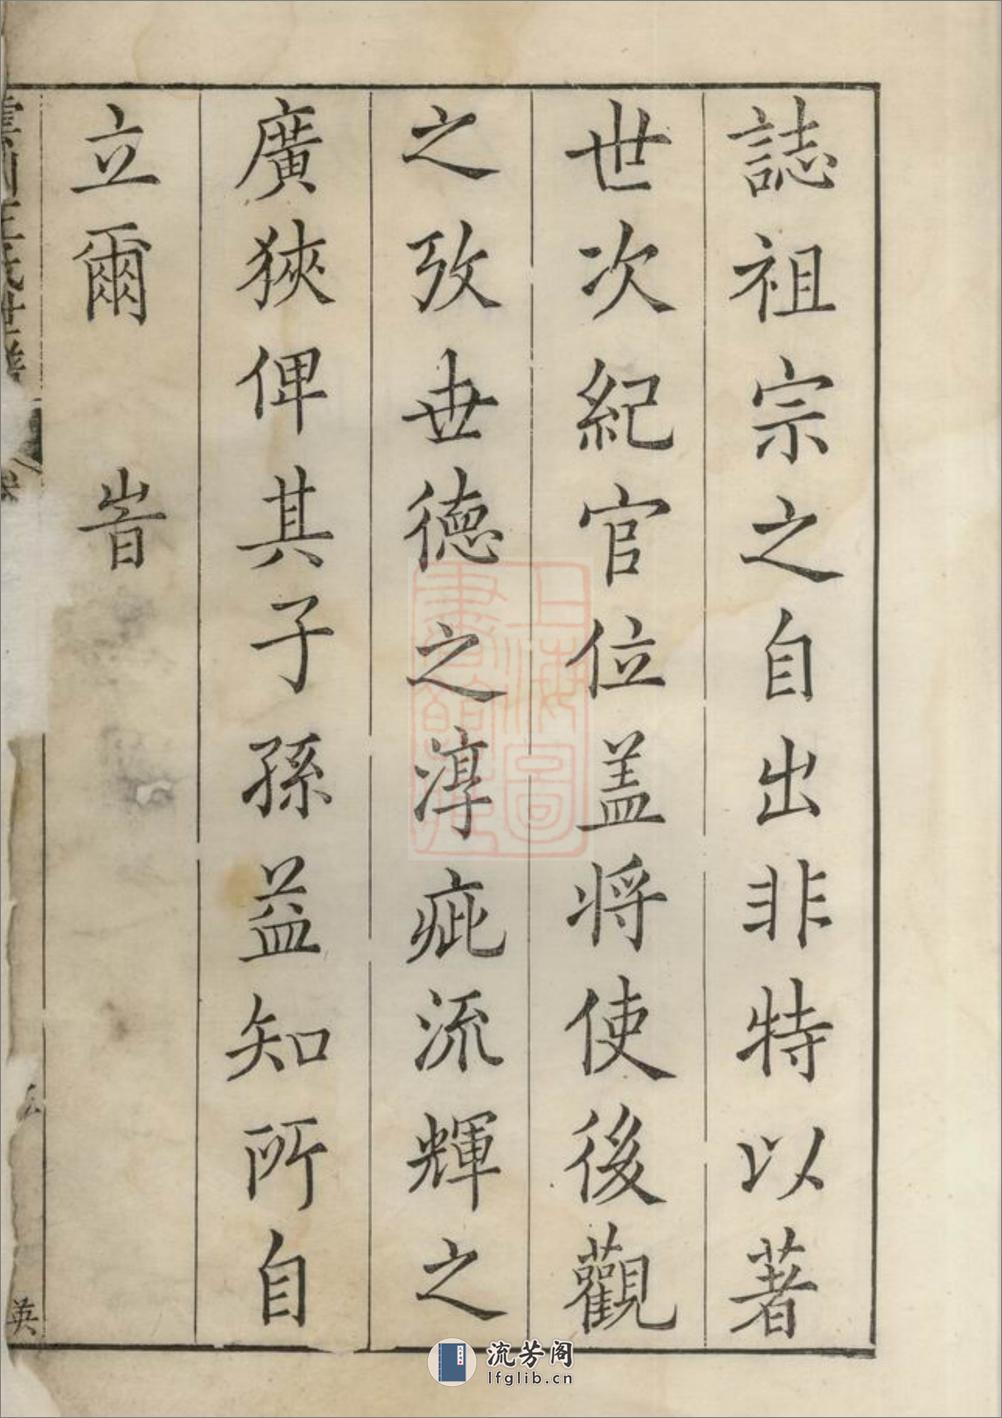 誌祖宗之自出非特以著
世次紀官位盖將使後觀
之攷世德之淳疵流輝之
廣狹俾其子孫益知所自
立爾 旹
英
上海圖書館藏
流芳阁
lfglib.cn